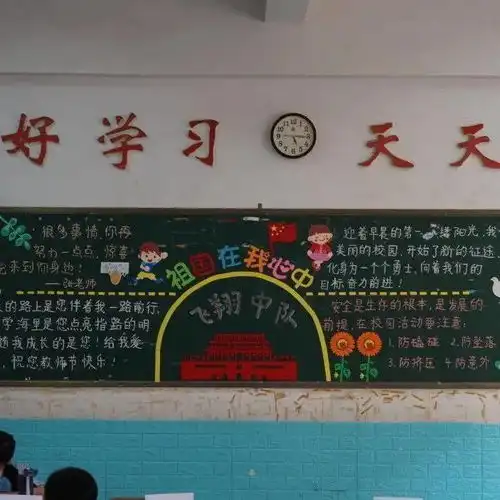 好学习 天天
很多事情，你再
努力一点点，惊喜
来到你身边！
——张老师
祖国在我心中
飞翔中队
迎着早晨的第一缕阳光，我
美丽的校园，开始了新的征途
化身为一个个勇士，向着我们的
目标奋力前进！
的路上是您伴着我一路前行，
学海里是您点亮指路的明
我成长的是您！给我爱
祝您教师节快乐！
安全是生存的根本，是发展的
前提，在校活动要注意：
1.防磕碰 2.防坠落
3.防挤压 4.防意外